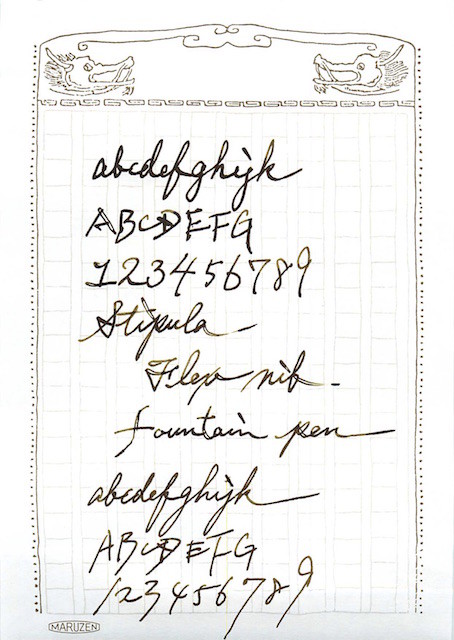 abcdefghijk
ABCDEFG
123456789
Stipula
Flex nib-
fountain pen
abcdefghijk
ABCDEFG
123456789
MARUZEN